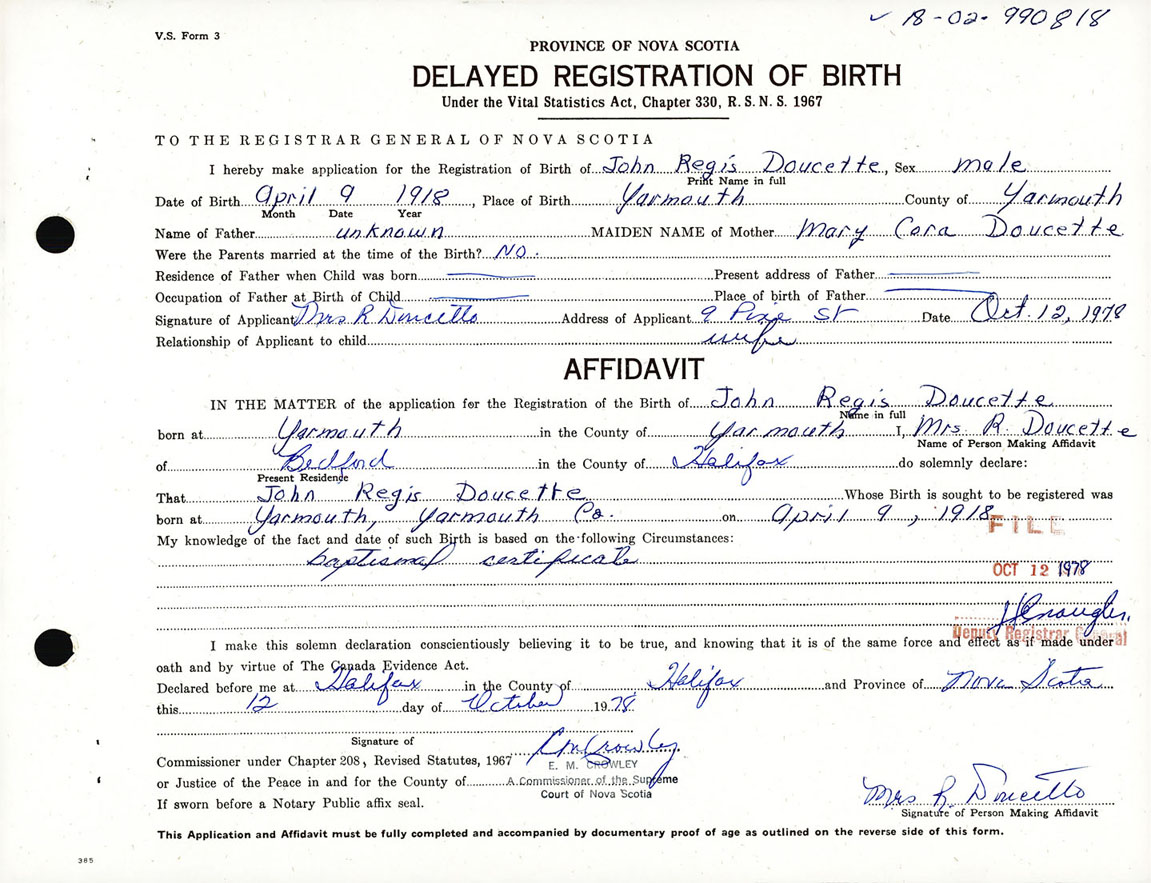 ✓ B-02-990818
V.S. Form 3
PROVINCE OF NOVA SCOTIA
DELAYED REGISTRATION OF BIRTH
Under the Vital Statistics Act, Chapter 330, R.S.N.S. 1967
TO THE REGISTRAR GENERAL OF NOVA SCOTIA
I hereby make application for the Registration of Birth of John Regis Doucette, Sex male
Print Name in full
Date of Birth April 9 1918, Place of Birth Yarmouth County of Yarmouth
Month Date Year
Name of Father unknown MAIDEN NAME of Mother Mary Cora Doucette
Were the Parents married at the time of the Birth? No.
Residence of Father when Child was born Present address of Father
Occupation of Father at Birth of Child Place of birth of Father
Signature of Applicant Mrs R Doucette Address of Applicant 9 Pixie St Date Oct. 12, 1978
Relationship of Applicant to child wife
AFFIDAVIT
IN THE MATTER of the application for the Registration of the Birth of John Regis Doucette
Name in full
born at Yarmouth in the County of Yarmouth I, Mrs. R. Doucette
Name of Person Making Affidavit
of Bedford in the County of Halifax do solemnly declare:
Present Residence
That John Regis Doucette Whose Birth is sought to be registered was
born at Yarmouth, Yarmouth Co. on April 9, 1918
FILE
My knowledge of the fact and date of such Birth is based on the following Circumstances:
baptismal certificate
OCT 12 1978
Deputy Registrar General
I make this solemn declaration conscientiously believing it to be true, and knowing that it is of the same force and effect as if made under
oath and by virtue of The Canada Evidence Act.
Declared before me at Halifax in the County of Halifax and Province of Nova Scotia
this 12 day of October 1978.
Signature of
Commissioner under Chapter 208, Revised Statutes, 1967 EM Crowley
E. M. CROWLEY
or Justice of the Peace in and for the County of A Commissioner of the Supreme
Court of Nova Scotia
If sworn before a Notary Public affix seal.
Mrs R. Doucette
Signature of Person Making Affidavit
This Application and Affidavit must be fully completed and accompanied by documentary proof of age as outlined on the reverse side of this form.
385